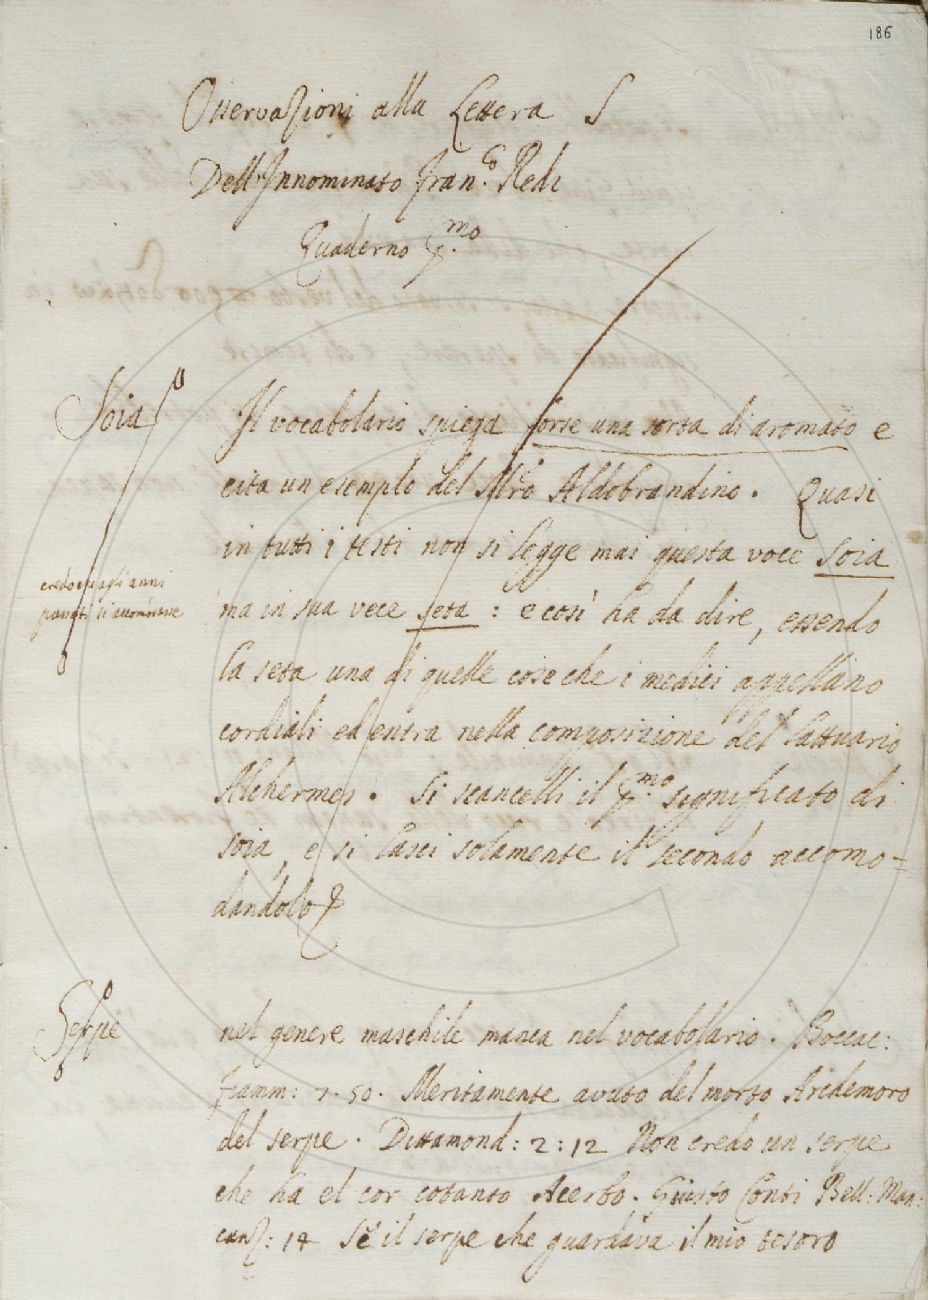 186
Osservazioni alla Lettera S
Dell'Innominato Fran.co Redi
Quaderno p.mo
Soia
Il vocabolario spiega forse una sorta di aromato e
cita un esemplo del Mro Aldobrandino. Quasi
in tutti i testi non si legge mai questa voce soia
credo che agli anni
passati si
ma in sua vece seta: e così ha da dire, essendo
la seta una di quelle cose che i medici appellano
cordiali ed entra nella composizione del Lattuario
Alchermes. Si scancelli il p.mo significato di
soia, e si lasci solamente il secondo accomo=
dandolo
Serpe
nel genere maschile manca nel vocabolario. Boccac:
Fiamm: 7.50. Meritamente avuto del morto Archemoro
del serpe. Dittamond: 2:12 Non credo un serpe
che ha el cor cotanto Acerbo. Giusto Conti Bell: Man:
canz: 14 Sè il serpe che guardava il mio tesoro